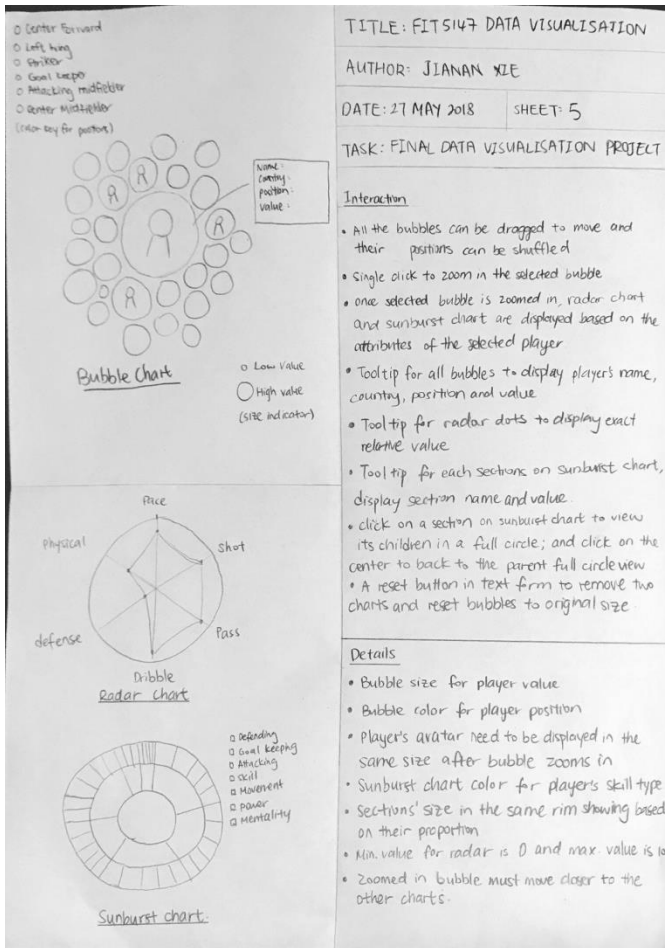 Center Forward
Left Wing
Striker
Goal keeper
Attacking midfielder
Center Midfielder
(color key for positions)
Name:
Country:
position:
value:
Bubble Chart
Low Value
High value
(size indicator)
Pace
Shot
Pass
Dribble
defense
physical
Radar chart
Defending
Goal keeping
Attacking
Skill
Movement
power
Mentality
Sunburst chart.
TITLE: FIT5147 DATA VISUALISATION
AUTHOR: JIANAN XIE
DATE: 27 MAY 2018
SHEET: 5
TASK: FINAL DATA VISUALISATION PROJECT
Interaction
• All the bubbles can be dragged to move and
their positions can be shuffled
• Single click to zoom in the selected bubble
• once selected bubble is zoomed in, radar chart
and sunburst chart are displayed based on the
attributes of the selected player
• Tooltip for all bubbles to display player's name,
country, position and value
• Tool tip for radar dots to display exact
relative value
• Tool tip for each sections on sunburst chart,
display section name and value.
• click on a section on sunburst chart to view
its children in a full circle; and click on the
center to back to the parent full circle view
• A reset button in text form to remove two
charts and reset bubbles to original size.
Details
• Bubble size for player value
• Bubble color for player position
• Player's avatar need to be displayed in the
same size after bubble zooms in
• Sunburst chart color for player's skill type
• Sections' size in the same rim showing based
on their proportion
• Min. value for radar is 0 and max. value is
• Zoomed in bubble must move closer to the
other charts.